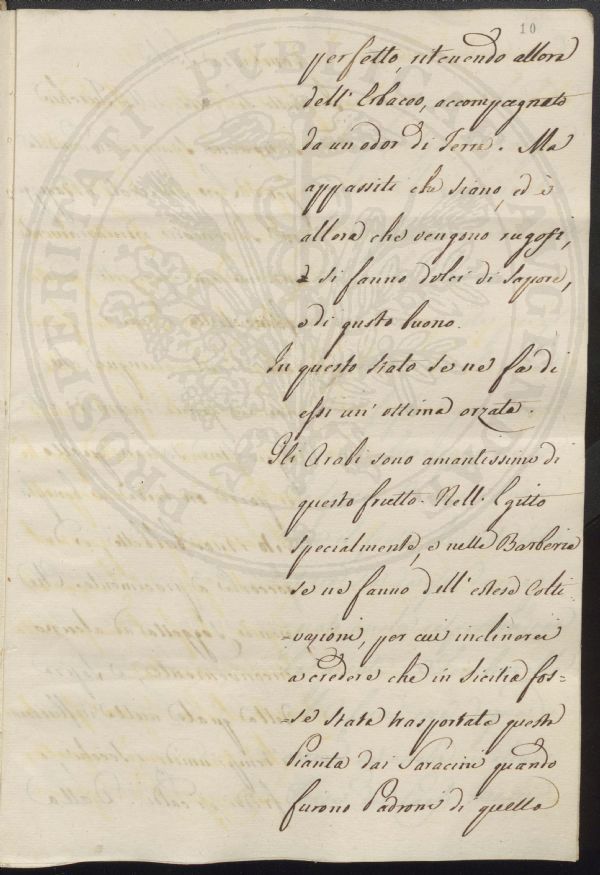 10
perfetto, ritenendo allora
dell' Erbaceo, accompagnato
da un odor di Terra. Ma
appassiti che siano, ed è
allora che vengono rugosi,
e si fanno dolci di sapore,
e di gusto buono.
In questo stato se ne fa di
essi un' ottima orzata.
Gli Arabi sono amantissimi di
questo frutto. Nell' Egitto
specialmente, e nelle Barberie
se ne fanno dell' estese Colti-
-vazioni, per cui inclinerei
a credere che in Sicilia fos-
-se stata trasportata questa
Pianta dai Saracini quando
furono Padroni di quella